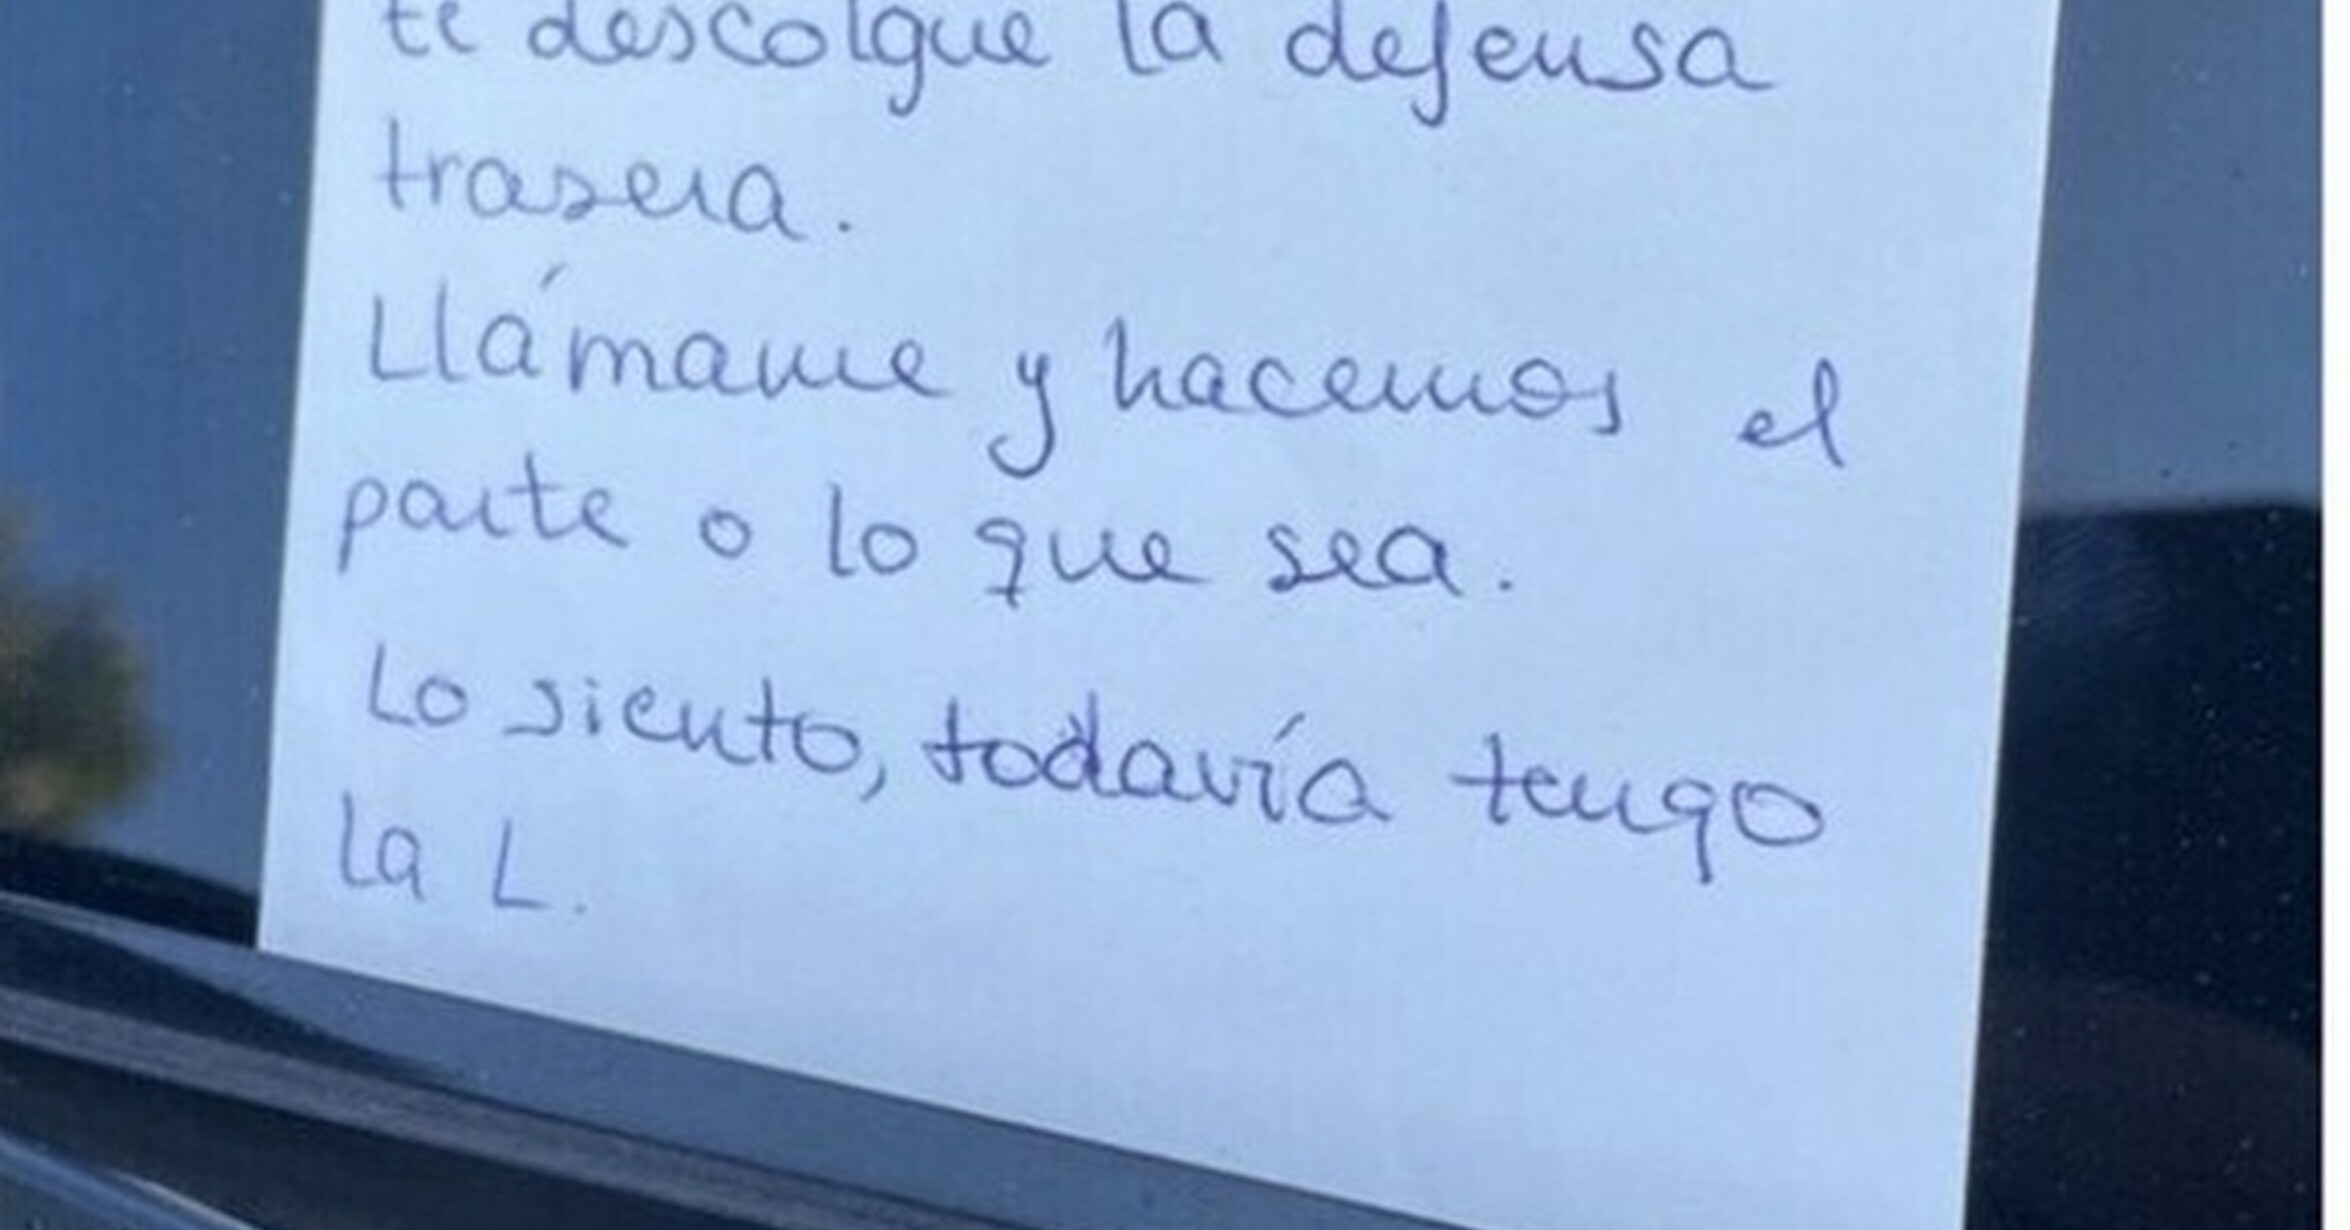 te descolgue la defensa
trasera.
Llámame y hacemos el
parte o lo que sea.
Lo siento, todavía tengo
la L.